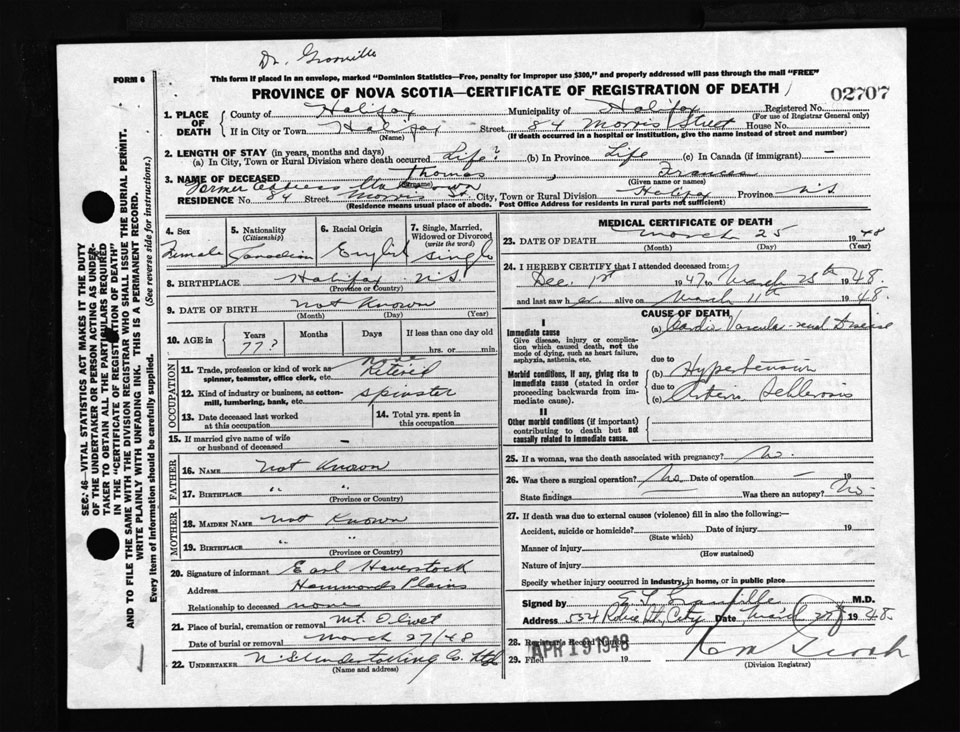 Dr. Granville
FORM 6
This form if placed in an envelope, marked "Dominion Statistics—Free, penalty for improper use $300," and properly addressed will pass through the mail "FREE"
PROVINCE OF NOVA SCOTIA—CERTIFICATE OF REGISTRATION OF DEATH
02707
1. PLACE OF DEATH
County of Halifax Municipality of Halifax Registered No.
(For use of Registrar General only)
If in City or Town Halifax Street 84 Morris Street House No.
(Name) (If death occurred in a hospital or institution, give the name instead of street and number)
2. LENGTH OF STAY (in years, months and days)
(a) In City, Town or Rural Division where death occurred Life? (b) In Province Life (c) In Canada (if immigrant) —
3. NAME OF DECEASED Thomas , Frances
(Surname) (Given name or names)
Former address Unknown
RESIDENCE No. 84 Street Morris St. City, Town or Rural Division Halifax Province N.S.
(Residence means usual place of abode. Post Office Address for residents in rural parts not sufficient)
4. Sex
Female
5. Nationality
(Citizenship)
Canadian
6. Racial Origin
English
7. Single, Married, Widowed or Divorced
(write the word)
Single
8. BIRTHPLACE Halifax N.S.
(Province or Country)
9. DATE OF BIRTH Not Known
(Month) (Day) (Year)
10. AGE in Years Months Days If less than one day old
77? hrs. or min.
OCCUPATION
11. Trade, profession or kind of work as spinner, teamster, office clerk, etc. None Retired
12. Kind of industry or business, as cotton-mill, lumbering, bank, etc. Spinster
13. Date deceased last worked at this occupation
14. Total yrs. spent in this occupation
15. If married give name of wife or husband of deceased —
FATHER
16. NAME Not Known
17. BIRTHPLACE " "
(Province or Country)
MOTHER
18. MAIDEN NAME Not Known
19. BIRTHPLACE " "
(Province or Country)
20. Signature of informant Earl Haverstock
Address Hammonds Plains
Relationship to deceased none
21. Place of burial, cremation or removal Mt. Olivet
Date of burial or removal March 27/48
22. UNDERTAKER N.S. Undertaking Co. Ltd
(Name and address)
MEDICAL CERTIFICATE OF DEATH
23. DATE OF DEATH March 25 1948
(Month) (Day) (Year)
24. I HEREBY CERTIFY that I attended deceased from:
Dec. 1st 1947 to March 25th 1948.
and last saw her alive on March 11th 1948.
CAUSE OF DEATH
I
Immediate cause
Give disease, injury or complication which caused death, not the mode of dying, such as heart failure, asphyxia, asthenia, etc.
(a) Cardio Vascular-renal Disease
due to
Morbid conditions, if any, giving rise to immediate cause (stated in order proceeding backwards from immediate cause).
(b) Hypertension
due to
(c) Arterio Schlerosis
II
Other morbid conditions (if important) contributing to death but not causally related to immediate cause.
25. If a woman, was the death associated with pregnancy? No.
26. Was there a surgical operation? No Date of operation — 19
State findings Was there an autopsy? No.
27. If death was due to external causes (violence) fill in also the following:—
Accident, suicide or homicide? Date of injury 19
(State which)
Manner of injury
(How sustained)
Nature of injury
Specify whether injury occurred in industry, in home, or in public place
Signed by E. L. Granville M.D.
Address 534 Robie St. City Date 1948.
28. Registrar's Record Number
APR 19 1948
29. Filed 19
(Division Registrar)
SEC. 46—VITAL STATISTICS ACT MAKES IT THE DUTY
OF THE UNDERTAKER OR PERSON ACTING AS UNDER-
TAKER TO OBTAIN ALL THE PARTICULARS REQUIRED
IN THE "CERTIFICATE OF REGISTRATION OF DEATH"
AND TO FILE THE SAME WITH THE DIVISION REGISTRAR WHO SHALL ISSUE THE BURIAL PERMIT.
WRITE PLAINLY WITH UNFADING INK. THIS IS A PERMANENT RECORD.
Every item of information should be carefully supplied. (See reverse side for instructions.)